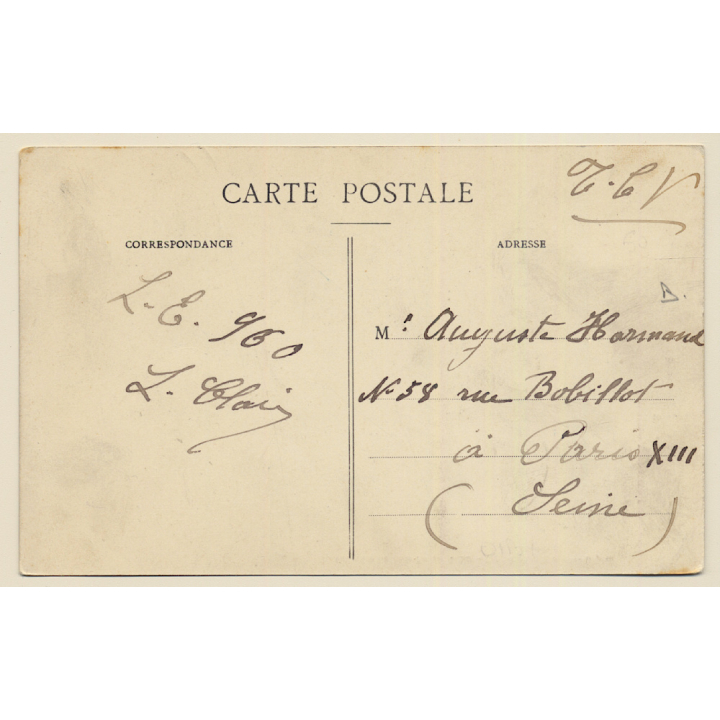 CARTE POSTALE
T.C.V
CORRESPONDANCE
L.E. 960
L. Clair
ADRESSE
D.
Mr. Auguste Harmand
No 58 rue Bobillot
à Paris XIII
(Seine)